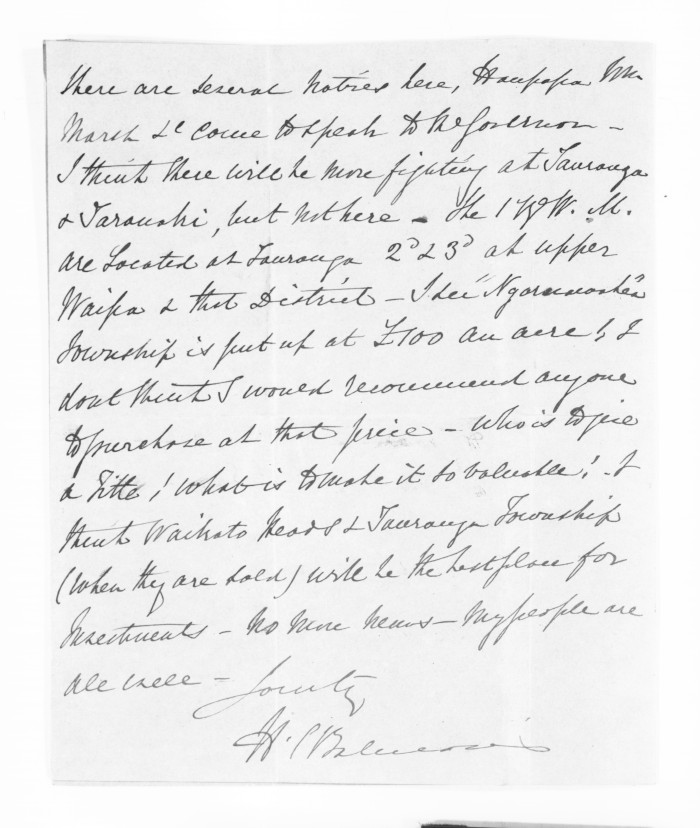 there are several Natives here, Haupapa Wm
Marsh &c come to speak to the Governor –
I think there will be more fighting at Tauranga
& Taranaki, but not here – The 1st W. M.
are Located at Tauranga 2d & 3d at upper
Waipa & that District – I see "Ngaruawahea"
Township is put up at £100 an acre !, I
dont think I would recommend anyone
to purchase at that price – who is to give
a Title ! what is to make it so valuable ! I
think Waikato Heads & Tauranga Township
(when they are sold) will be the best place for
Investments – no more news – My people are
all well –
Yours truly
H. C.